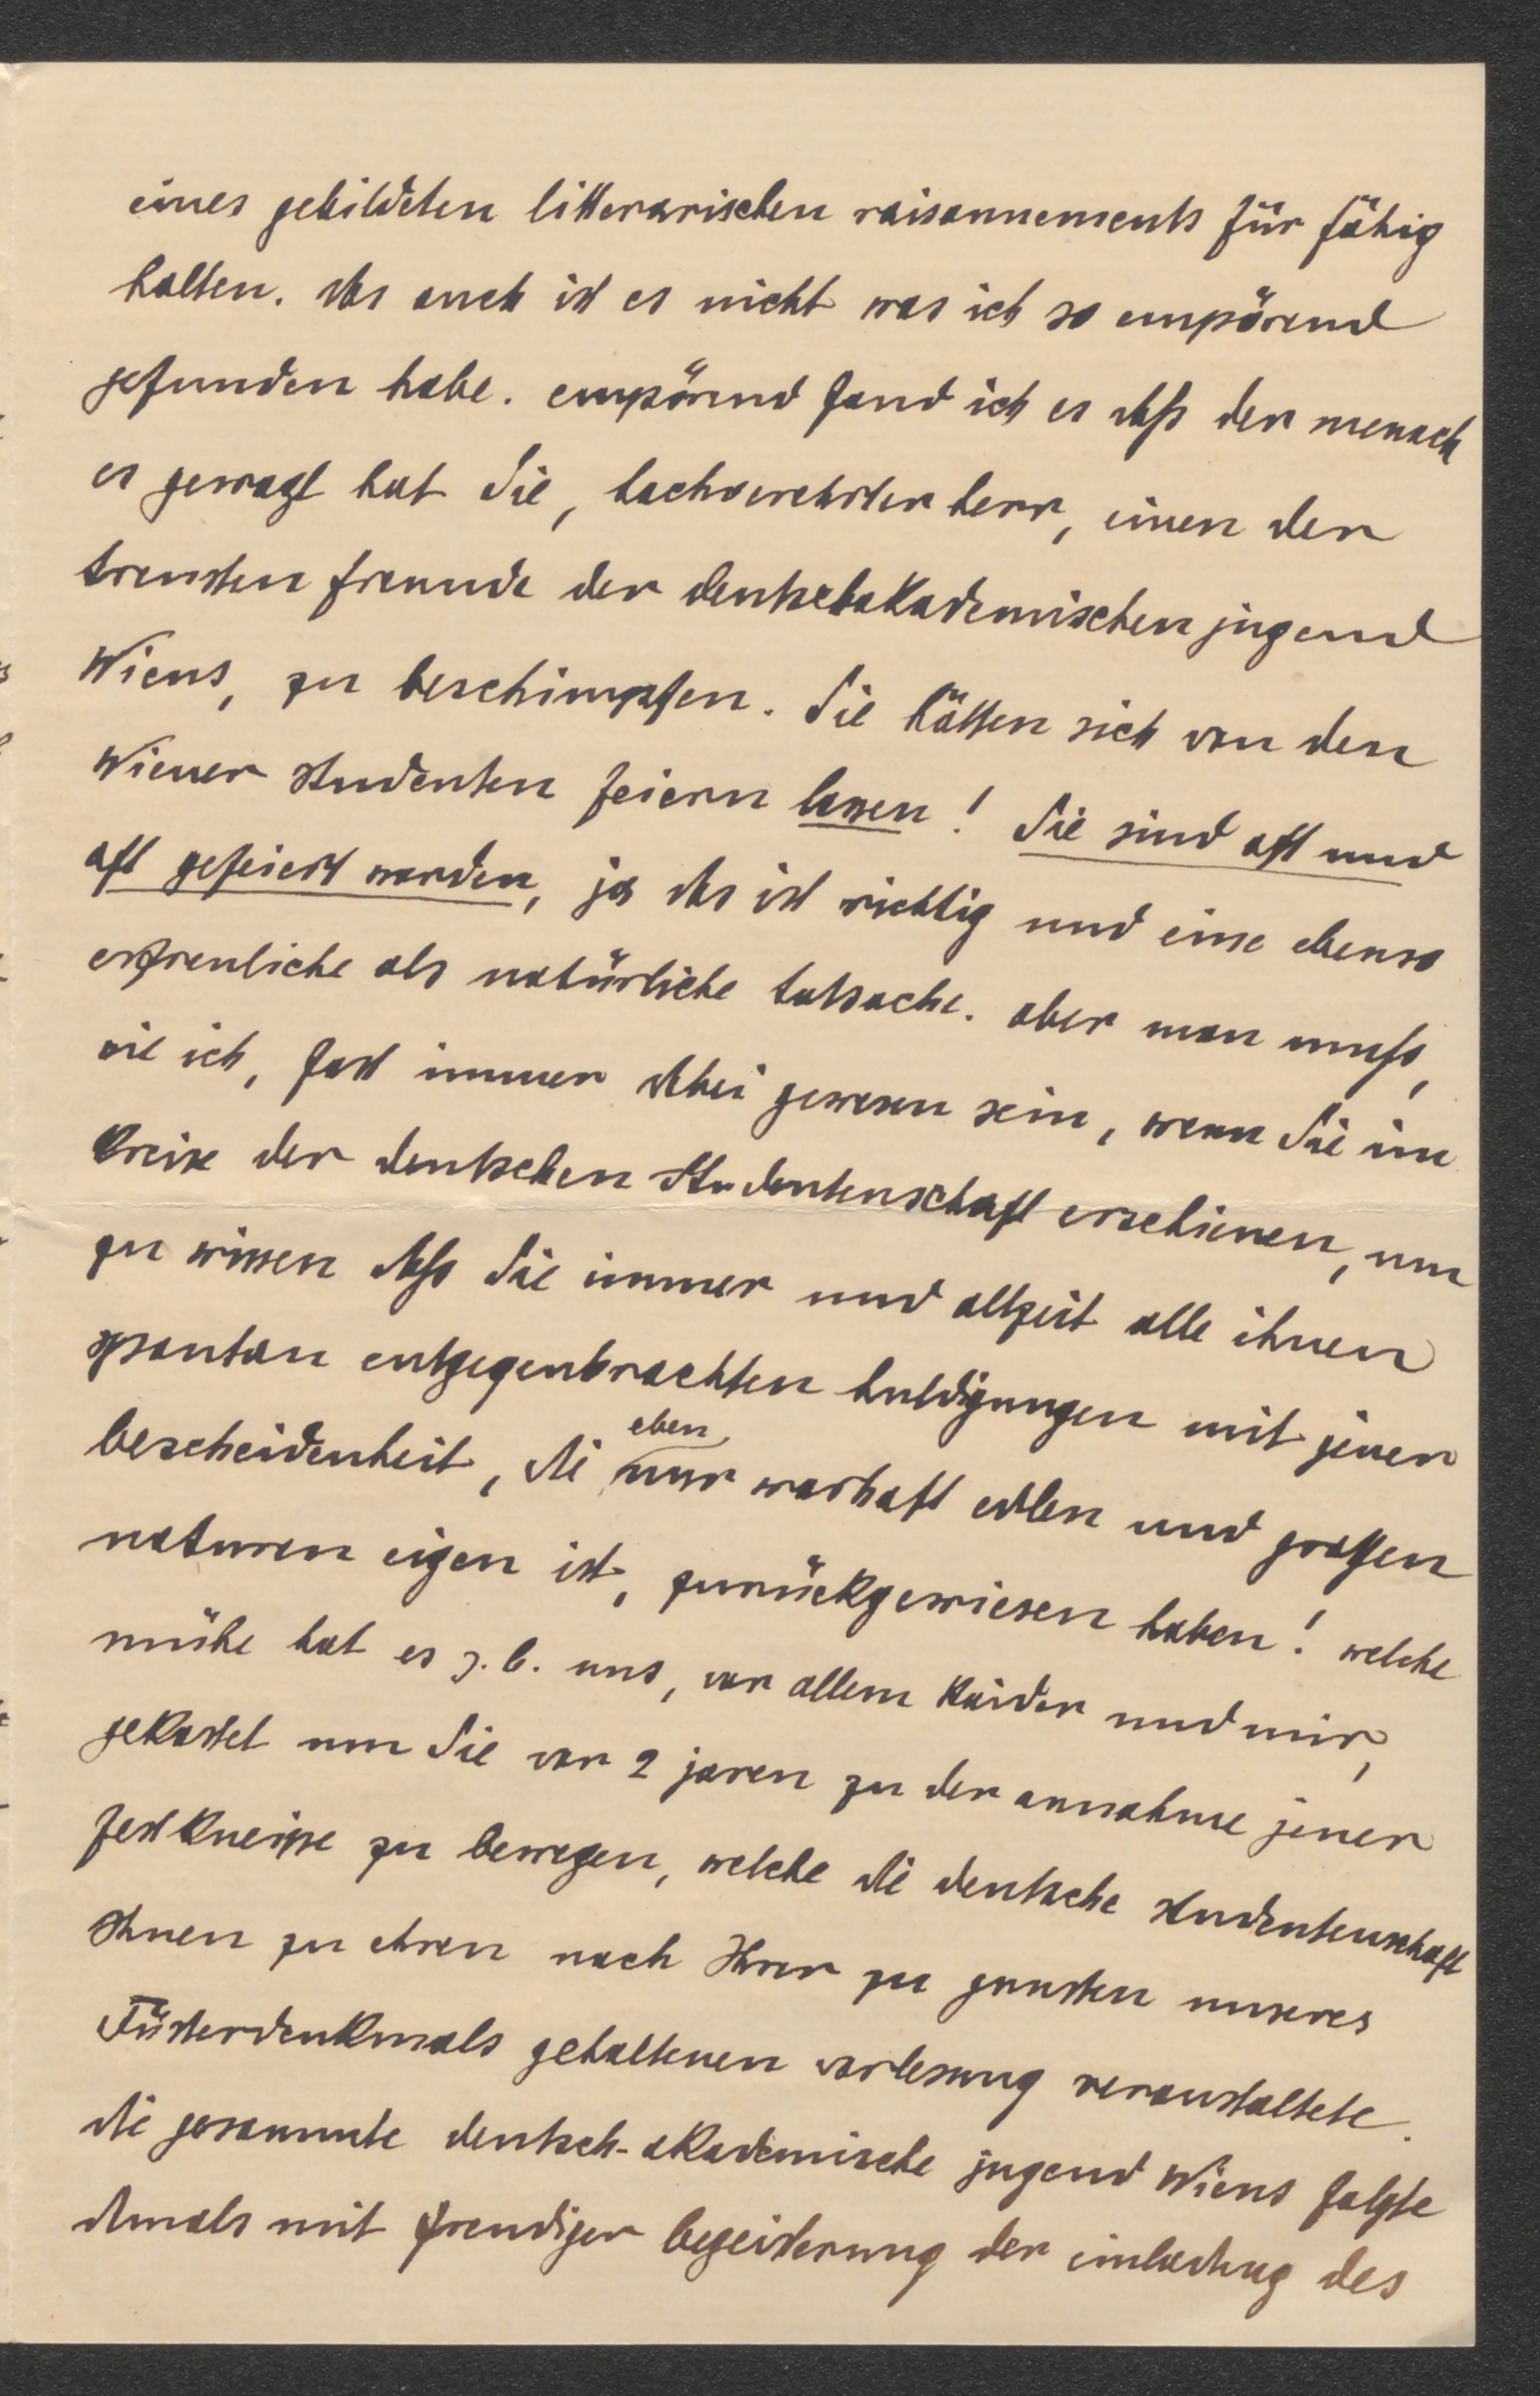 eines gebildeten litterarischen raisonnements für fähig
halten. das auch ist es nicht was ich so empörend
gefunden habe. empörend fand ich es daſs der mensch
es gewagt hat Sie, hochverehrter herr, einen der
treusten freunde der deutschakademischen jugend
Wiens, zu beschimpfen. Sie hätten sich von den
Wiener studenten feiern lassen! Sie sind oft und
oft gefeiert worden, ja das ist richtig und eine ebenso
erfreuliche als natürliche tatsache. aber man muſs,
wie ich, fast immer dabei gewesen sein, wenn Sie im
kreise der deutschen Studentenschaft erschienen, um
zu wissen daſs Sie immer und allzeit alle ihnen
spontan entgegenbrachten huldigungen mit jener
bescheidenheit, di eben nur warhaft edlen und grossen
naturen eigen ist, zurückgewiesen haben! welche
mühe hat es z. b. uns, vor allem Kaider und mir,
gekostet um Sie vor 2 jaren zu der annahme jener
festkneipe zu bewegen, welche di deutsche studentenschaft
Ihnen zu ehren nach Ihrer zu gunsten unseres
Füsterdenkmals gehaltenen vorlesung veranstaltete.
di gesammte deutsch-akademische jugend Wiens folgte
damals mit freudiger begeisterung der einladung des